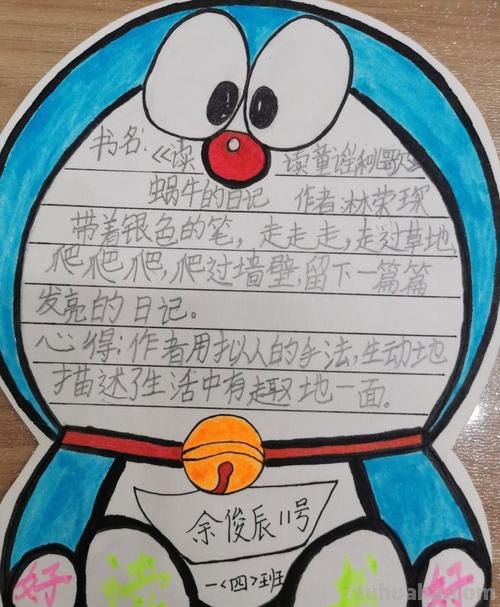 书名:《读 读童谣和歌》
蜗牛的日记 作者:林荣琛
带着银色的笔，走走走，走过草地，
爬爬爬，爬过墙壁，留下一篇篇
发亮的日记。
心得:作者用拟人的手法，生动地
描述了生活中有趣地一面。
余俊辰11号
一<四>班
好 读 书 好